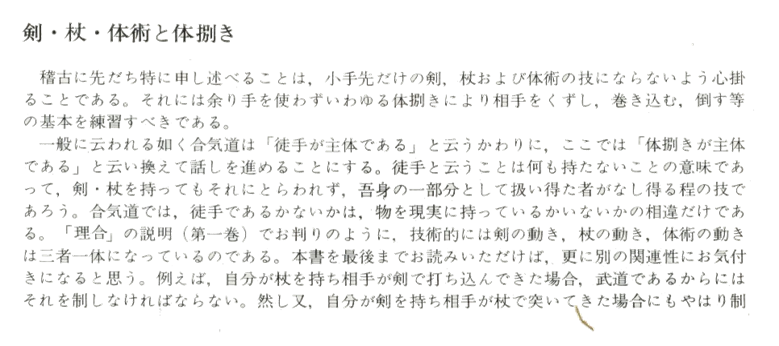 剣・杖・体術と体捌き
稽古に先だち特に申し述べることは，小手先だけの剣，杖および体術の技にならないよう心掛
ることである。それには余り手を使わずいわゆる体捌きにより相手をくずし，巻き込む，倒す等
の基本を練習すべきである。
一般に云われる如く合気道は「徒手が主体である」と云うかわりに，ここでは「体捌きが主体
である」と云い換えて話しを進めることにする。徒手と云うことは何も持たないことの意味であ
って，剣・杖を持ってもそれにとらわれず，吾身の一部分として扱い得た者がなし得る程の技で
あろう。合気道では，徒手であるかないかは，物を現実に持っているかいないかの相違だけであ
る。「理合」の説明（第一巻）でお判りのように，技術的には剣の動き，杖の動き，体術の動き
は三者一体になっているのである。本書を最後までお読みいただけば，更に別の関連性にお気付
きになると思う。例えば，自分が杖を持ち相手が剣で打ち込んできた場合，武道であるからには
それを制しなければならない。然し又，自分が剣を持ち相手が杖で突いてきた場合にもやはり制